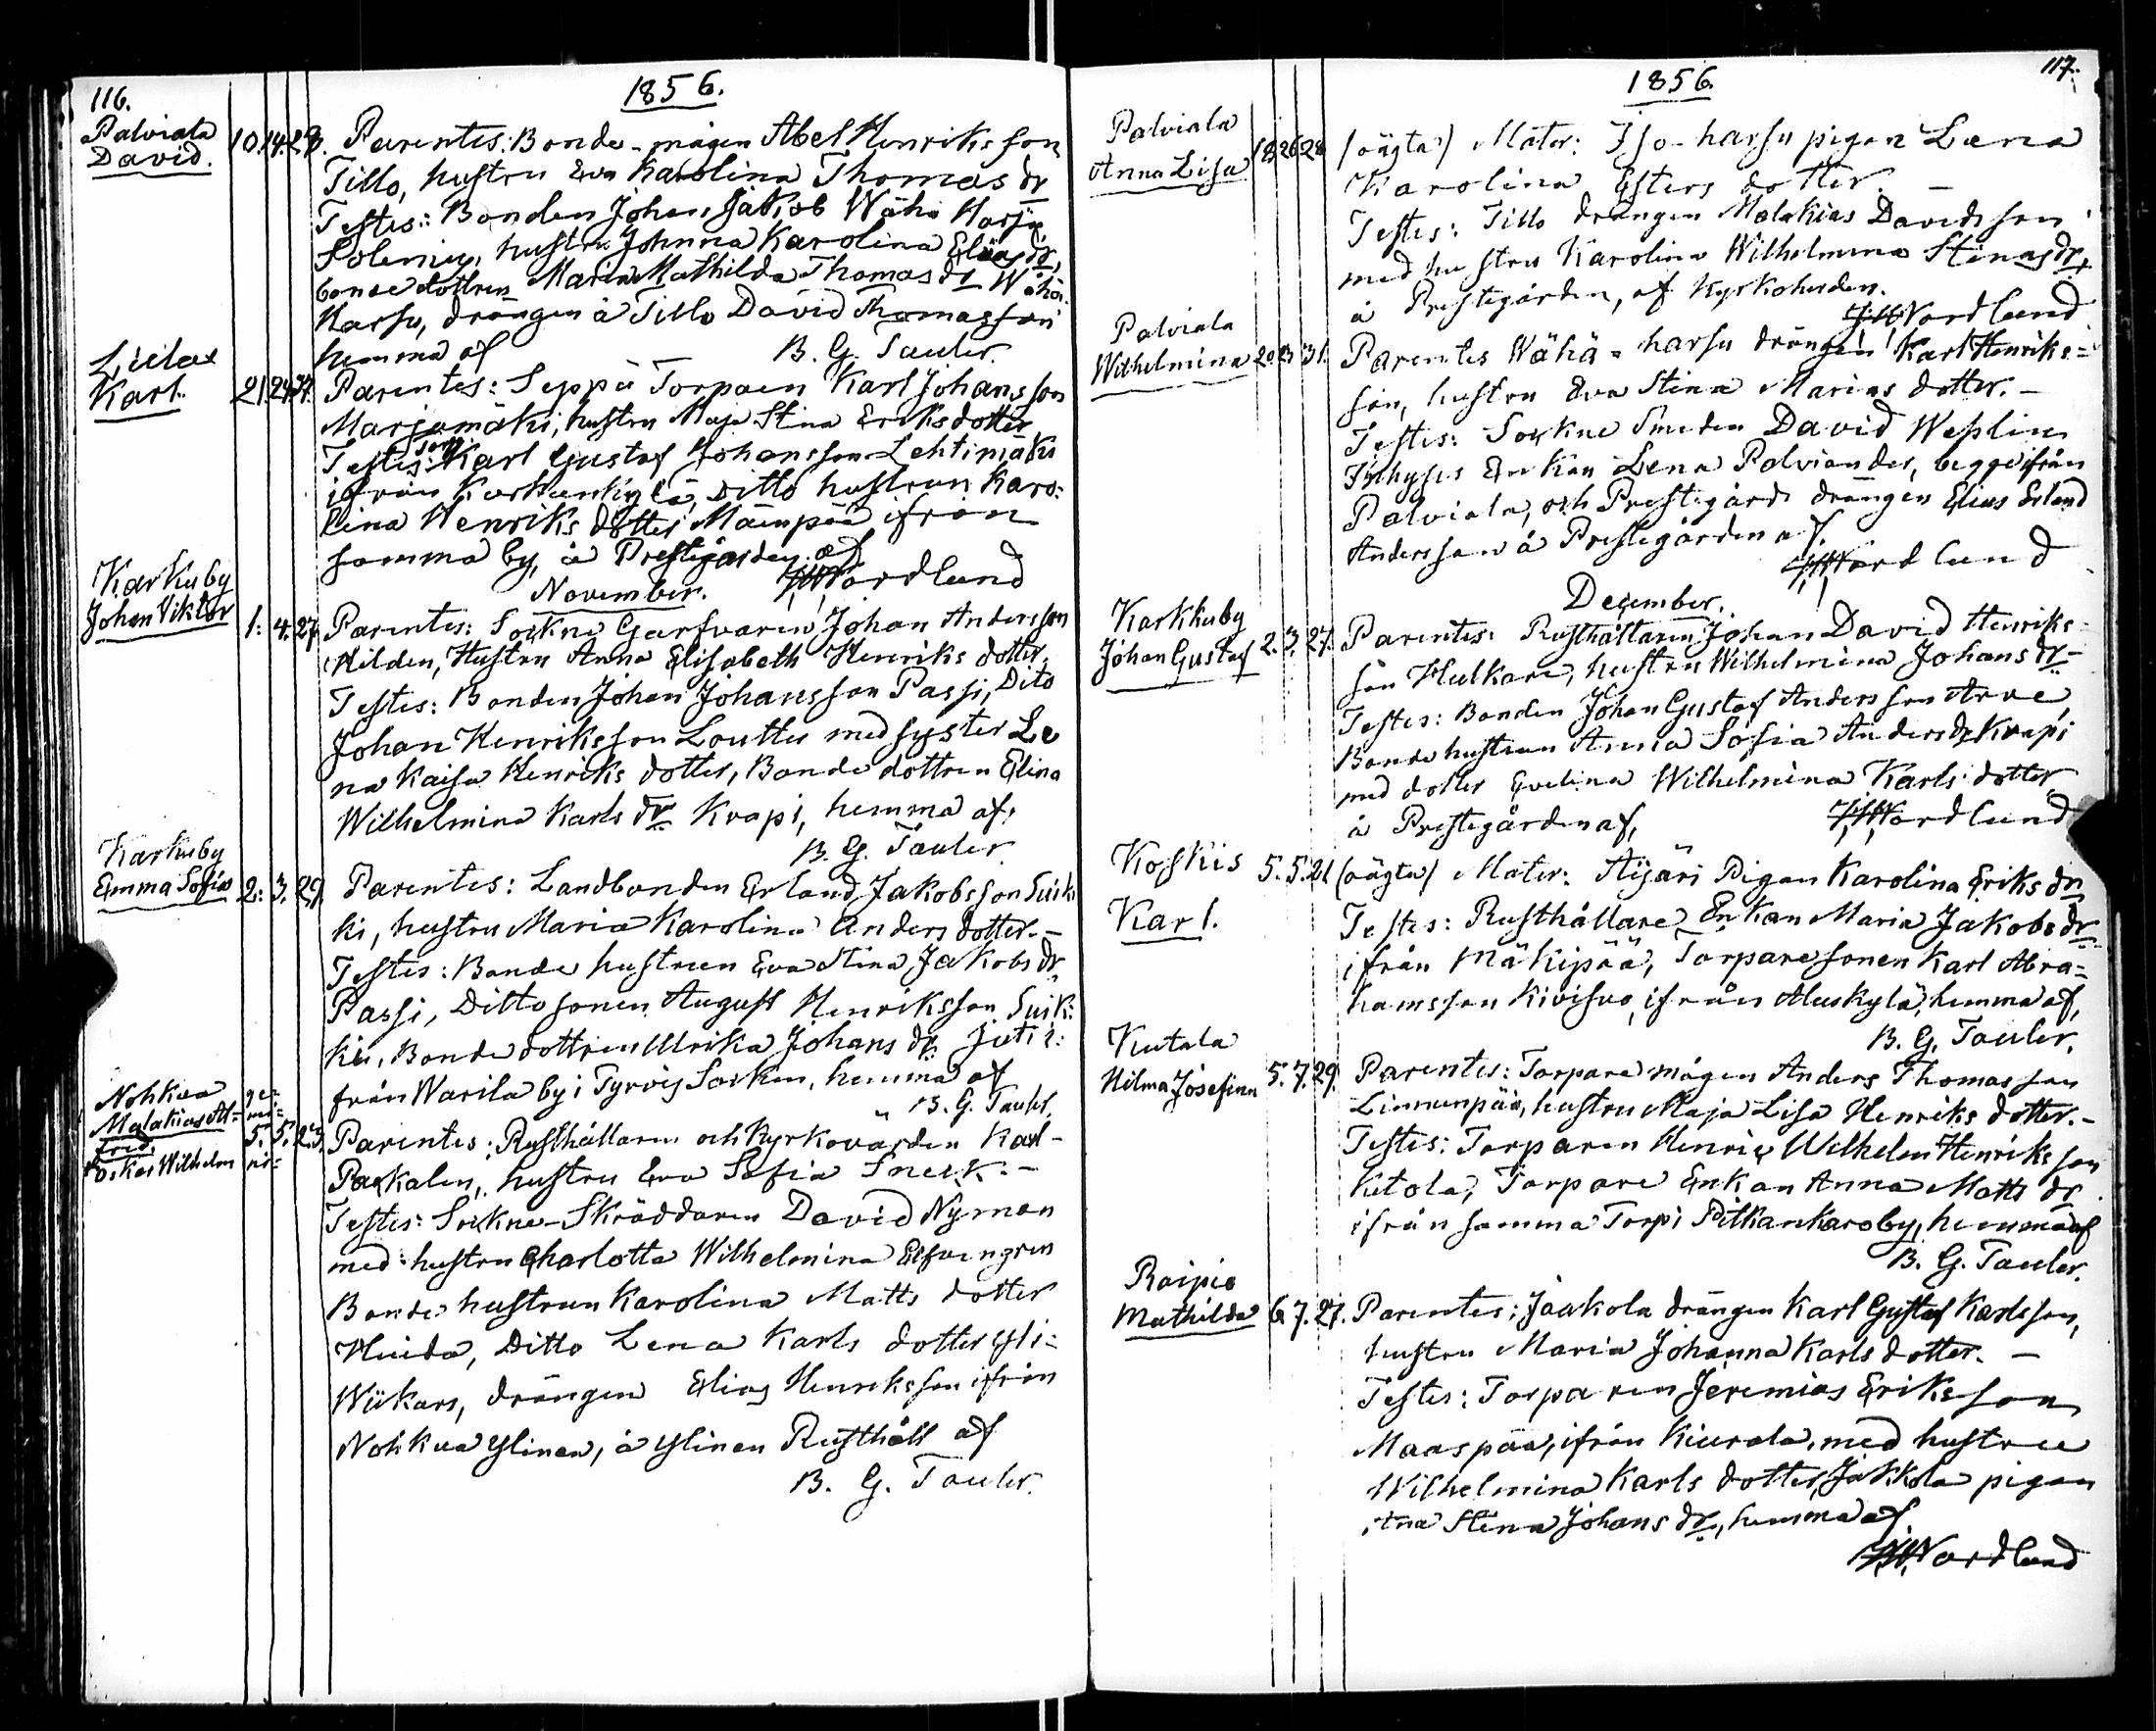 116.
1856.
Palviala
David.
10. 14. 28.
Parentes: Bonde-mågen Abel Henriksson
Tillo, hustru Eva Karolina Thomas dr
Testes: Bonden Johan Jakob Wähä Harju
hustru Johnna Karolina Elias dr,
bonde dottren Maria Mathilda Thomas dr Wähä
Harsu, drängen å Tillo David Thomasson
hemma af
B. G. Tauler.
Karl.
21. 24.
Parentes: Seppä Torparen Karl Johansson
Marjamäki, hustru Maja Stina Eriksdotter
Testes: Karl Gustaf Johansson Lehtimäki
ifrån Karhunkylä, Ditto hustrun Karo=
lina Henriks dotter Mäenpää ifrån
samma by, å Prestegården af
Nordlund
November.
Karkuby
Johan Viktor
1. 4. 27.
Parentes: Sockne Garfvaren Johan Andersson
Hilden, Hustru Anna Elisabeth Henriks dotter.
Testes: Bonden Johan Johansson Passi, Dito
Johan Henriksson Louttu med syster Le
na Kaisa Henriks dotter, Bonde dottren Elina
Wilhelmina Karls dr Krapi, hemma af,
B. G. Tauler.
Karkuby
Emma Sofia
2. 3. 29.
Parentes: Landbonden Erland Jakobsson Suik
ki, hustru Maria Karolina Anders dotter.-
Testes: Bonde hustrun Eva Stina Jakobs dr
Passi, Ditto sonen August Henriksson Suik:
ki, Bonde dottren Ulrika Johans dr
från Warila by i Tyrvis Socken, hemma af
B. G. Tauler.
Nohkua
Malakias Al-
fred
Oskar Wilhelm
5. 5. 25.
Parentes: Rusthållaren och Kyrkovärden Karl
hustru Eva Sofia Sneck.-
Testes: Sockne-Skräddaren David Nyman
med hustru Charlotta Wilhelmina Elfvengren
Bonde hustrun Karolina Matts dotter
Huida, Ditto Lena Karls dotter yli=
Wiikars, drängen Elias Henriksson ifrån
Nohkua Ylinen, å Ylinen Rusthåll af
B. G. Tauler.
117.
1856.
Palviala
Anna Lisa
18. 26. 28.
(oägta) Mater: Iso-harsu pigan Lena
Karolina Esters dotter. -
Testes: Tillo drängen Malakias Davidsson
med hustru Karolina Wilhelmina Stinas dr,
å Prestegården, af Kyrkoherden.
Nordlund
Palviala
Wilhelmina
20. 23. 31.
Parentes Wähä=harsu drängen Karl Henriks=
son, hustru Eva Stina Marias dotter.-
Testes: Sockne Smeden David Weplin
Inhyses Enkan Lena Palviander, begge ifrån
Palviala, och Prestegårds drängen Elias Erland
Andersson å Prestegården af.
Nordlund
December.
Karkkuby
Johan Gustaf
2. 3. 27.
Parentes: Rusthållaren Johan David Henriks=
son Hulkari, hustru Wilhelmina Johans dr-
Testes: Bonden Johan Gustaf Andersson Arve
Bonde hustrun Anna Sofia Anders dr Krapi
med dotter Evelina Wilhelmina Karls dotter
å Prestegården af,
Nordlund
Koskis
Karl.
5. 5. 21
(oägta) Mater: Äijäri Pigan Karolina Eriks dr
Testes: Rusthållare Enkan Maria Jakobs dr
ifrån Mäkipää, Torpare sonen Karl Abra=
hamsson Kivisuo, ifrån Aluskylä, hemma af,
B. G. Tauler.
Kutala
Hilma Josefina
5. 7. 29.
Parentes: Torpare mågen Anders Thomasson
Linnunpää, hustru Maja Lisa Henriks dotter.-
Testes: Torparen Henric Wilhelm Henriksson
Ketola, Torpare Enkan Anna Matts dr
ifrån samma Torp i Pitkankaroby, hemma af
B. G. Tauler.
Roipio
Mathilda
6. 7. 27.
Parentes: Jaakola drängen Karl Gustaf Karlsson,
hustru Maria Johanna Karls dotter. -
Testes: Torparen Jeremias Eriksson
Maaspää, ifrån Kiurala, med hustru
Wilhelmina Karls dotter, Jakkola pigan
Stina Johans dr, hemma af
Nordlund